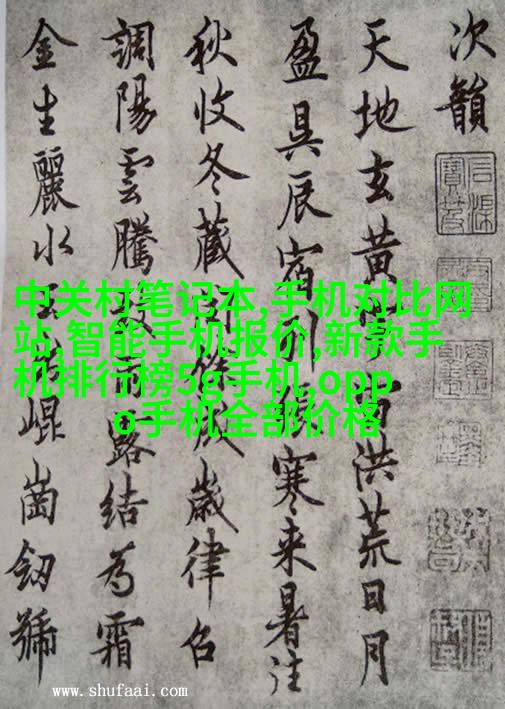 次韻
天地玄黄宙洪荒日月
盈昃辰宿列張寒来暑往
秋收冬藏歲律召
調陽雲騰露結為霜
金生麗水玉出崐崗劒號
中关村笔记本,手机对比网
站,智能手机报价,新款手
机排行榜5g手机,opp
o手机全部价格
www.shufaai.com